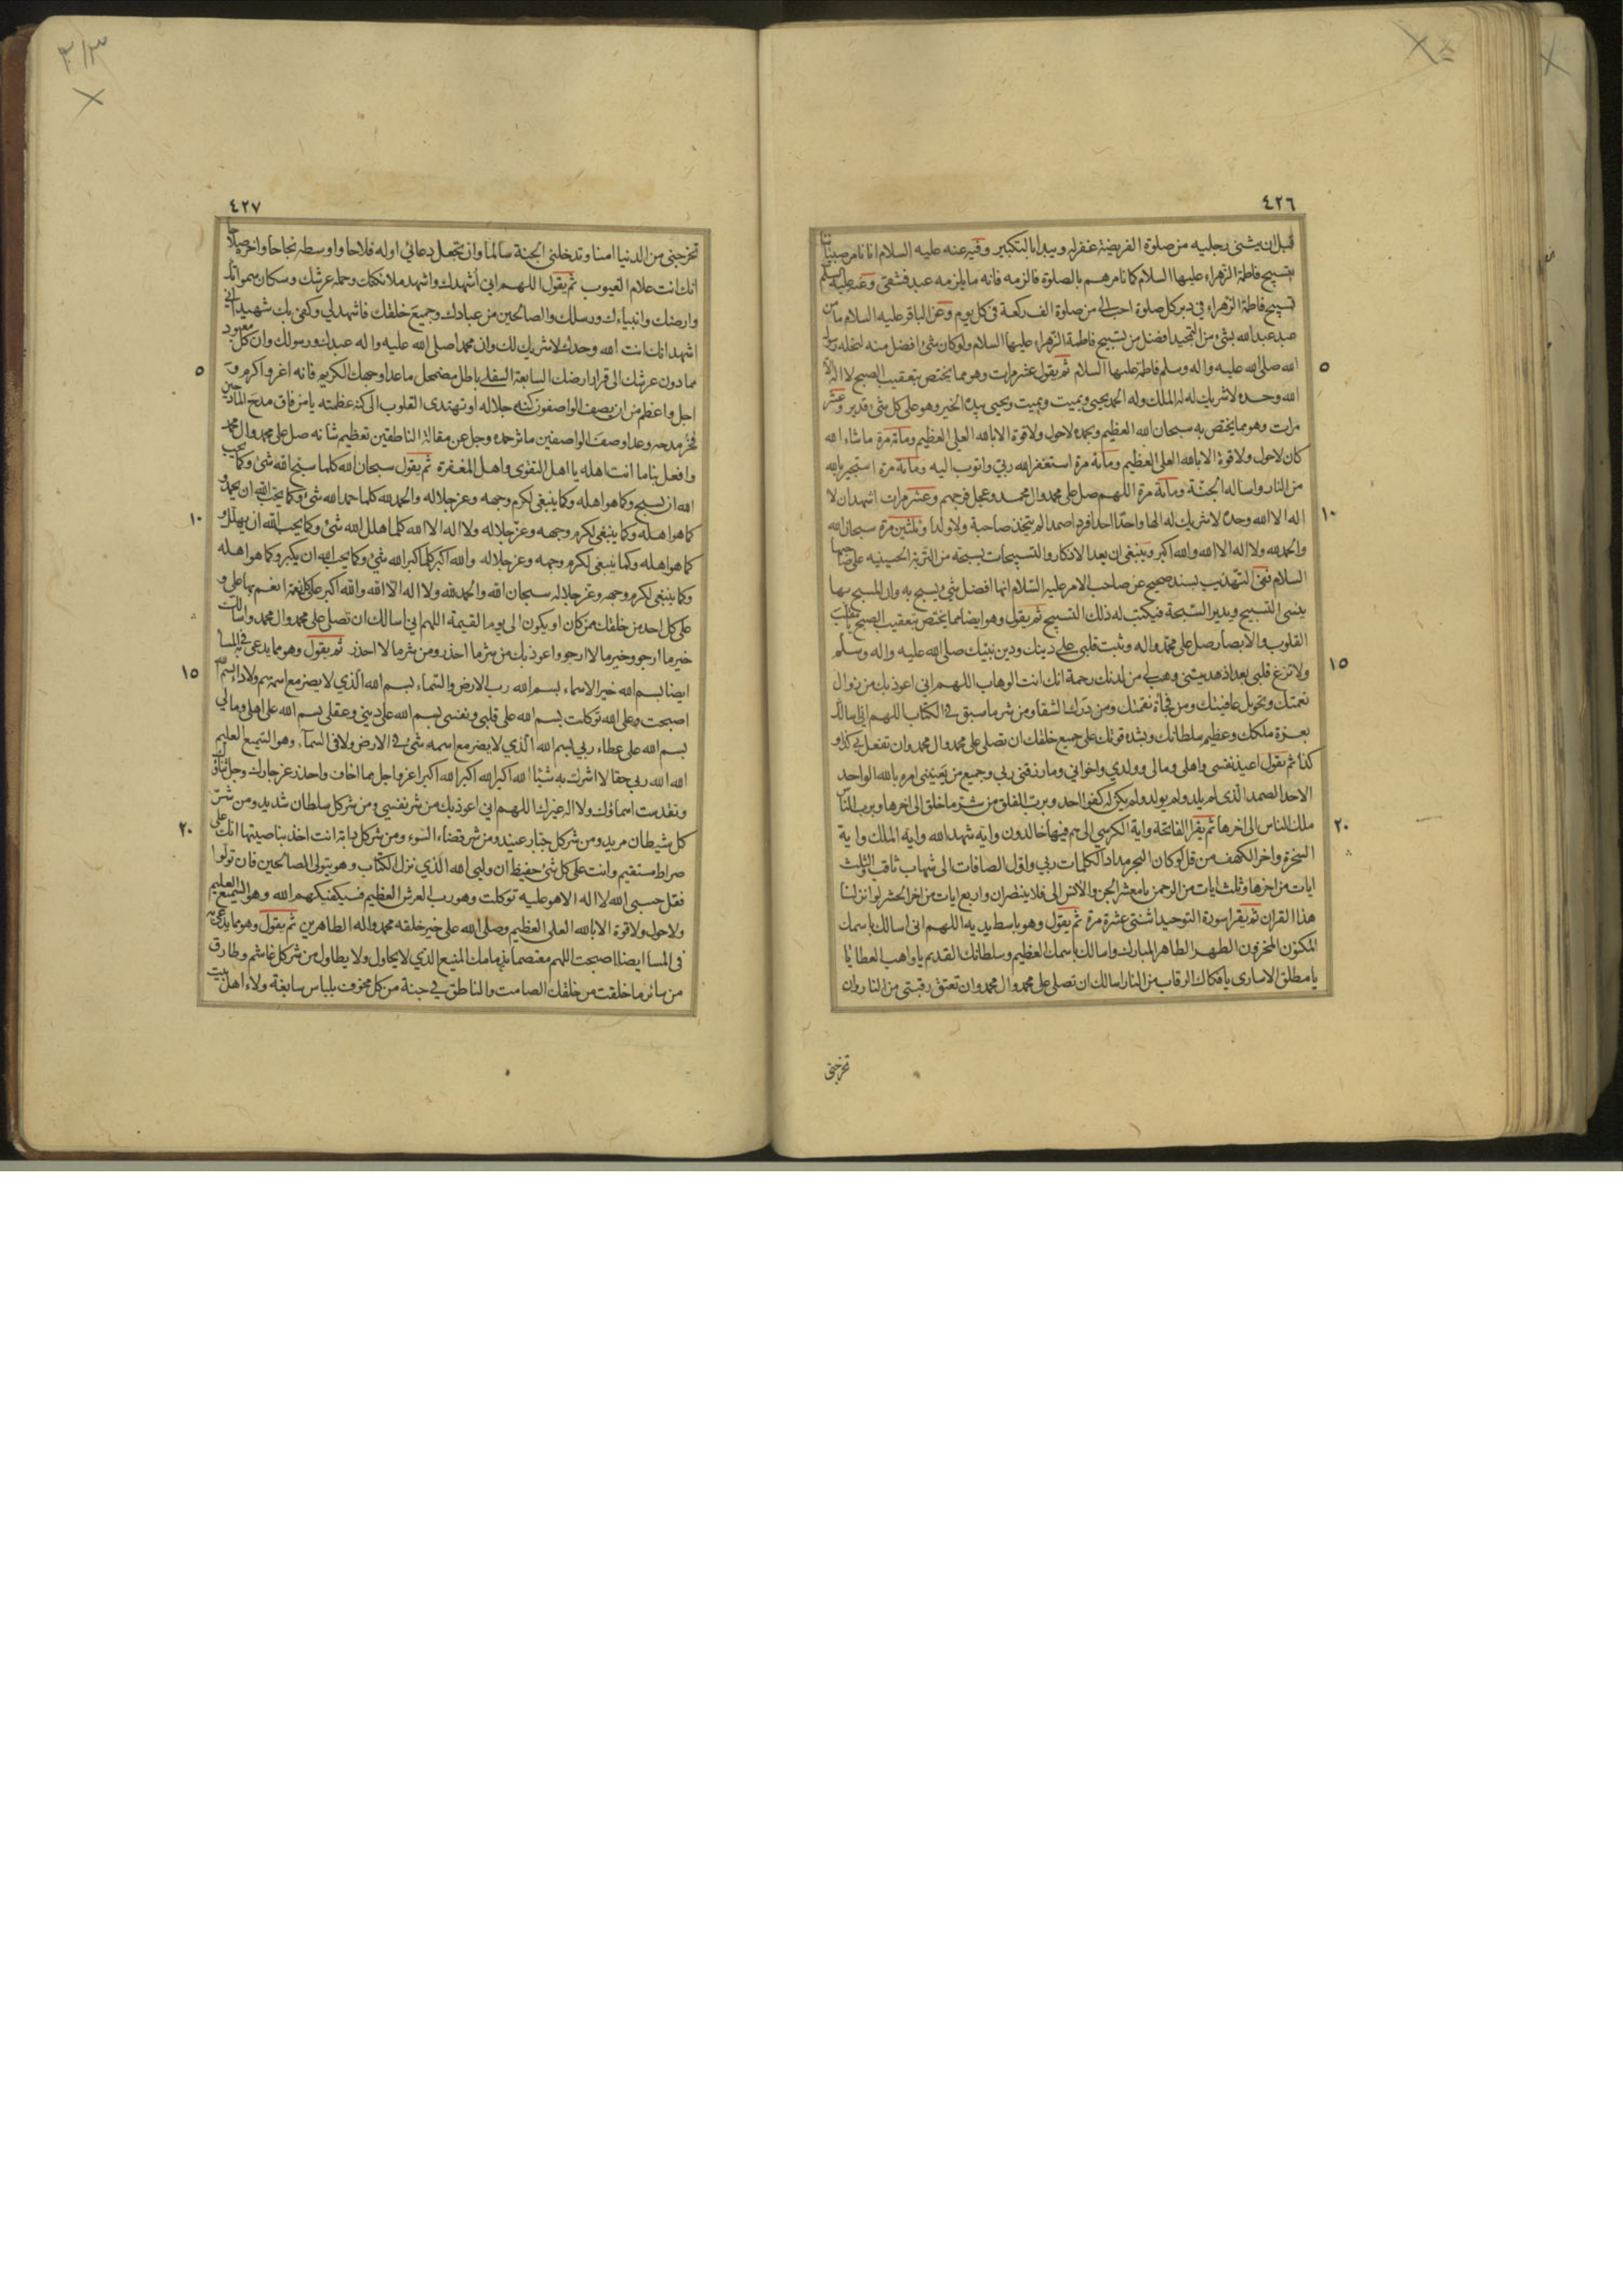 ٤٢٦
قبل ان يثنى رجليه من صلوة الفريضة غفر له ويبدا بالتكبير وفيه عنه عليه السلام انا نامر صبياننا
بتسبيح فاطمة الزهراء عليها السلام كما نامرهم بالصلوة فالزمه فانه ما يلزمه عبد فشقى وعنه عليه السلم
تسبيح فاطمة الزهراء فى دبر كل صلوة احب الى من صلوة الف ركعة فى كل يوم وعن الباقر عليه السلام ما من
عبد عبد الله بشئ من التمجيد افضل من تسبيح فاطمة الزهراء عليها السلام ولو كان شئ افضل منه لنحله رسول
٥
الله صلى الله عليه واله وسلم فاطمة عليها السلام ثم يقول عشر مرات وهو مما يختص بتعقيب الصبح لا اله الا
الله وحده لا شريك له له الملك وله الحمد يحيى ويميت ويميت ويحيى بيده الخير وهو على كل شئ قدير وعشر
مرات وهو مما يختص به سبحان الله العظيم وبحمده لاحول ولاقوة الا بالله العلى العظيم ومائة مرة ما شاء الله
كان لاحول ولا قوة الا بالله العلى العظيم ومائة مرة استغفر الله ربى واتوب اليه ومائة مرة استجير بالله
من النار واساله الجنة ومائة مرة اللهم صل على محمد وال محمد وعجل فرجهم وعشر مرات اشهد ان لا
١٠
اله الا الله وحده لا شريك له الها واحدا احدا فردا صمدا لم يتخذ صاحبة ولا ولدا وثلثين مرة سبحان الله
والحمد لله ولا اله الا الله والله اكبر وينبغى ان يعد الاذكار والتسبيحات بسبحة من التربة الحسينيه على صاحبها
السلام ففى التهذيب بسند صحيح عن صاحب الامر عليه السلام انها افضل شئ يسبح به وان المسبح بها
ينسى التسبيح ويدير السبحة فيكتب له ذلك التسبيح ثم يقول وهو ايضا مما يختص بتعقيب الصبح يا مقلب
القلوب والابصار صل على محمد واله وثبت قلبى على دينك ودين نبيك صلى الله عليه واله وسلم
١٥
ولا تزغ قلبى بعد اذ هديتنى وهب لى من لدنك رحمة انك انت الوهاب اللهم انى اعوذ بك من زوال
نعمتك وتحويل عافيتك ومن فجأة نقمتك ومن درك الشقا ومن شر ما سبق فى الكتاب اللهم انى اسالك
بعزة ملكك وعظيم سلطانك وبشدة قوتك على جميع خلقك ان تصلى على محمد وال محمد وان تفعل بى كذا و
كذا ثم يقول اعيذ نفسى واهلى ومالى وولدي واخوانى وما رزقنى ربى وجميع من يعنينى امره بالله الواحد
الاحد الصمد الذى لم يلد ولم يولد ولم يكن له كفوا احد وبرب الفلق من شر ما خلق الى اخرها وبرب الناس
٢٠
ملك الناس الى اخرها ثم يقرا الفاتحة واية الكرسي الى هم فيها خالدون واية شهد الله واية الملك واية
السخرة واخر الكهف من قل لو كان البحر مدادا لكلمات ربى واول الصافات الى شهاب ثاقب وثلث
ايات من اخرها وثلث ايات من الرحمن يا معشر الجن والانس الى فلا ينتصران واربع ايات من اخر الحشر لو انزلنا
هذا القران ثم يقرا سورة التوحيد اثنتى عشرة مرة ثم يقول وهو باسط يديه اللهم انى اسالك باسمك
المكنون المخزون الطهر الطاهر المبارك واسالك باسمك العظيم وسلطانك القديم يا واهب العطايا
يا مطلق الاسارى يا فكاك الرقاب من النار اسالك ان تصلى على محمد وال محمد وان تعتق رقبتى من النار وان
تخرجنى
٤٢٧
تخرجنى من الدنيا امنا وتدخلنى الجنة سالما وان تجعل دعائى اوله فلاحا واوسطه نجاحا واخره صلاحا
انك انت علام الغيوب ثم يقول اللهم انى أشهدك واشهد ملائكتك وحملة عرشك وسكان سمواتك
وارضك وانبياءك ورسلك والصالحين من عبادك وجميع خلقك فاشهد لى وكفى بك شهيدا انى
اشهد انك انت الله وحدك لا شريك لك وان محمدا صلى الله عليه واله عبدك ورسولك وان كل معبود
٥
مما دون عرشك الى قرار ارضك السابعة السفلى باطل مضمحل ما عدا وجهك الكريم فانه اعز واكرم و
اجل واعظم من ان يصف الواصفون كنه جلاله او تهتدى القلوب الى كنه عظمته يا من فاق مدح المادحين
فخر مدحه وعدا وصف الواصفين ماثر حمده وجل عن مقالة الناطقين تعظيم شانه صل على محمد وال محمد
وافعل بنا ما انت اهله يا اهل التقوى واهل المغفرة ثم يقول سبحان الله كلما سبح الله شئ وكما يحب
الله ان يسبح وكما هو اهله وكما ينبغى لكرم وجهه وعز جلاله والحمد لله كلما حمد الله شئ وكما يحب الله ان يحمد و
١٠
كما هو اهله وكما ينبغى لكرم وجهه وعز جلاله ولا اله الا الله كلما هلل الله شئ وكما يحب الله ان يهلل و
كما هو اهله وكما ينبغى لكرم وجهه وعز جلاله والله اكبر كلما كبر الله شئ وكما يحب الله ان يكبر وكما هو اهله
وكما ينبغى لكرم وجهه وعز جلاله سبحان الله والحمد لله ولا اله الا الله والله اكبر على كل نعمة انعم بها على و
على كل احد من خلقك من كان او يكون الى يوم القيمة اللهم انى اسالك ان تصلى على محمد وال محمد واسالك
خير ما ارجو وخير ما لا ارجو واعوذ بك من شر ما احذر ومن شر ما لا احذر ثم يقول وهو مما يدعى فى المسا
١٥
ايضا بسم الله خير الاسماء بسم الله رب الارض والسماء بسم الله الذي لا يضر مع اسمه سم ولا داء بسم الله
اصبحت وعلى الله توكلت بسم الله على قلبى ونفسى بسم الله على دينى وعقلى بسم الله على اهلى ومالى
بسم الله على عطاء ربى بسم الله الذي لا يضر مع اسمه شئ فى الارض ولا فى السمآء وهو السميع العليم
الله الله ربى حقا لا اشرك به شيئا الله اكبر الله اكبر الله اكبر اعز واجل مما اخاف واحذر عز جارك وجل ثناؤك
وتقدست اسماؤك ولا اله غيرك اللهم انى اعوذ بك من شر نفسى ومن شر كل سلطان شديد ومن شر
٢٠
كل شيطان مريد ومن شر كل جبار عنيد ومن شر قضاء السوء ومن شر كل دابة انت اخذ بناصيتها انك على
صراط مستقيم وانت على كل شئ حفيظ ان وليى الله الذي نزل الكتاب وهو يتولى الصالحين فان تولوا
فقل حسبى الله لا اله الا هو عليه توكلت وهو رب العرش العظيم فسيكفيكهم الله وهو السميع العليم
ولا حول ولا قوة الا بالله العلى العظيم وصلى الله على خير خلقه محمد واله الطاهرين ثم يقول وهو مما يدعى به
فى المسا ايضا اصبحت اللهم معتصما بذمامك المنيع الذي لا يحاول ولا يطاول من شر كل غاشم وطارق
من سائر ما خلقت من خلقك الصامت والناطق فى جنة من كل مخوف بلباس سابغة ولاء اهل بيت